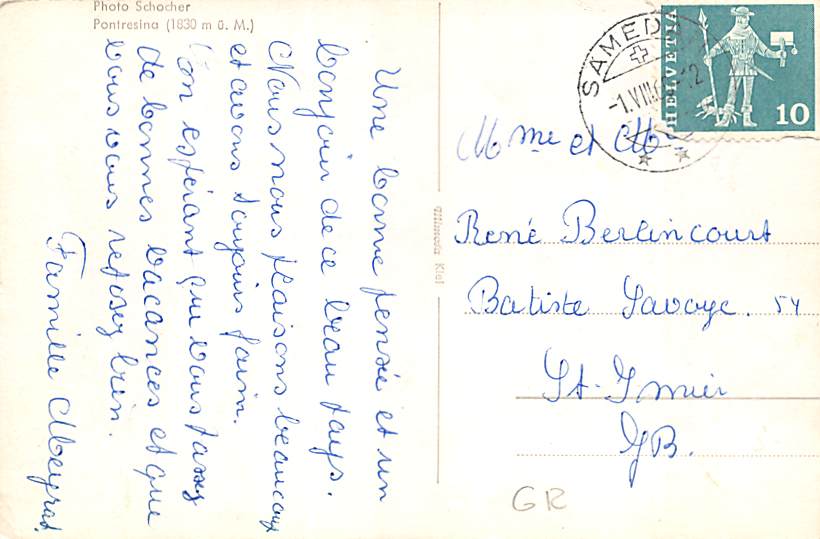 Photo Schocher
Pontresina (1830 m ü. M.)
Une bonne pensée et un
bonjour de ce beau pays.
Nous nous plaisons beaucoup
et avons toujours faim.
En espérant que vous passez
de bonnes vacances et que
vous vous reposez bien.
Famille Meyrat.
Mimosa Kiel
SAMEDA
-1.VIII. 12
HELVETIA
10
Mme et M
René Berlincourt
Batiste Savoye. 54
St-Imier
JB.
GR